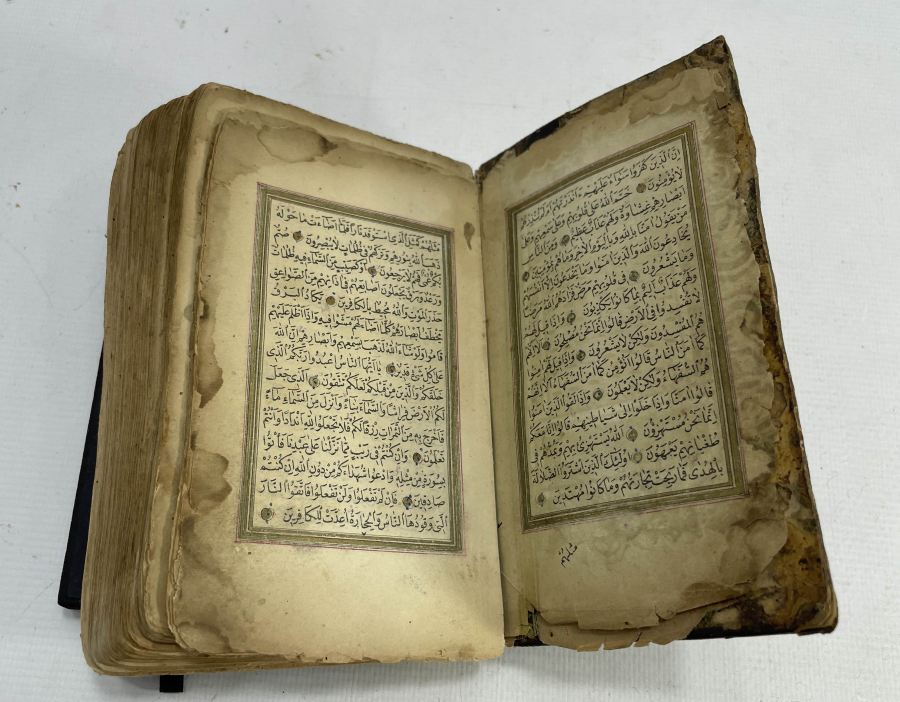 اِنَّ الَّذِينَ كَفَرُوا سَوَاءٌ عَلَيْهِمْ ءَاَنْذَرْتَهُمْ اَمْ لَمْ تُنْذِرْهُمْ
لَا يُؤْمِنُونَ خَتَمَ اللهُ عَلَى قُلُوبِهِمْ وَعَلَى سَمْعِهِمْ وَعَلَى
اَبْصَارِهِمْ غِشَاوَةٌ وَلَهُمْ عَذَابٌ عَظِيمٌ وَمِنَ النَّاسِ
مَنْ يَقُولُ اٰمَنَّا بِاللهِ وَبِالْيَوْمِ الْاٰخِرِ وَمَا هُمْ بِمُؤْمِنِينَ
يُخَادِعُونَ اللهَ وَالَّذِينَ اٰمَنُوا وَمَا يَخْدَعُونَ اِلَّا اَنْفُسَهُمْ
وَمَا يَشْعُرُونَ فِى قُلُوبِهِمْ مَرَضٌ فَزَادَهُمُ اللهُ مَرَضًا
وَلَهُمْ عَذَابٌ اَلِيمٌ بِمَا كَانُوا يَكْذِبُونَ وَاِذَا قِيلَ لَهُمْ
لَا تُفْسِدُوا فِى الْاَرْضِ قَالُوا اِنَّمَا نَحْنُ مُصْلِحُونَ اَلَا اِنَّهُمْ
هُمُ الْمُفْسِدُونَ وَلٰكِنْ لَا يَشْعُرُونَ وَاِذَا قِيلَ لَهُمْ اٰمِنُوا
كَمَا اٰمَنَ النَّاسُ قَالُوا اَنُؤْمِنُ كَمَا اٰمَنَ السُّفَهَاءُ اَلَا اِنَّهُمْ
هُمُ السُّفَهَاءُ وَلٰكِنْ لَا يَعْلَمُونَ وَاِذَا لَقُوا الَّذِينَ اٰمَنُوا
قَالُوا اٰمَنَّا وَاِذَا خَلَوْا اِلَى شَيَاطِينِهِمْ قَالُوا اِنَّا مَعَكُمْ
اِنَّمَا نَحْنُ مُسْتَهْزِؤُنَ اَللهُ يَسْتَهْزِئُ بِهِمْ وَيَمُدُّهُمْ فِى
طُغْيَانِهِمْ يَعْمَهُونَ اُولٰئِكَ الَّذِينَ اشْتَرَوُا الضَّلَالَةَ
بِالْهُدَى فَمَا رَبِحَتْ تِجَارَتُهُمْ وَمَا كَانُوا مُهْتَدِينَ
مَثَلُهُمْ
مَثَلُهُمْ كَمَثَلِ الَّذِى اسْتَوْقَدَ نَارًا فَلَمَّا اَضَاءَتْ مَا حَوْلَهُ
ذَهَبَ اللهُ بِنُورِهِمْ وَتَرَكَهُمْ فِى ظُلُمَاتٍ لَا يُبْصِرُونَ صُمٌّ
بُكْمٌ عُمْىٌ فَهُمْ لَا يَرْجِعُونَ اَوْ كَصَيِّبٍ مِنَ السَّمَاءِ فِيهِ ظُلُمَاتٌ
وَرَعْدٌ وَبَرْقٌ يَجْعَلُونَ اَصَابِعَهُمْ فِى اٰذَانِهِمْ مِنَ الصَّوَاعِقِ
حَذَرَ الْمَوْتِ وَاللهُ مُحِيطٌ بِالْكَافِرِينَ يَكَادُ الْبَرْقُ
يَخْطَفُ اَبْصَارَهُمْ كُلَّمَا اَضَاءَ لَهُمْ مَشَوْا فِيهِ وَاِذَا اَظْلَمَ عَلَيْهِمْ
قَامُوا وَلَوْ شَاءَ اللهُ لَذَهَبَ بِسَمْعِهِمْ وَاَبْصَارِهِمْ اِنَّ اللهَ
عَلَى كُلِّ شَىْءٍ قَدِيرٌ يَا اَيُّهَا النَّاسُ اعْبُدُوا رَبَّكُمُ الَّذِى
خَلَقَكُمْ وَالَّذِينَ مِنْ قَبْلِكُمْ لَعَلَّكُمْ تَتَّقُونَ اَلَّذِى جَعَلَ
لَكُمُ الْاَرْضَ فِرَاشًا وَالسَّمَاءَ بِنَاءً وَاَنْزَلَ مِنَ السَّمَاءِ مَاءً
فَاَخْرَجَ بِهِ مِنَ الثَّمَرَاتِ رِزْقًا لَكُمْ فَلَا تَجْعَلُوا لِلهِ اَنْدَادًا وَاَنْتُمْ
تَعْلَمُونَ وَاِنْ كُنْتُمْ فِى رَيْبٍ مِمَّا نَزَّلْنَا عَلَى عَبْدِنَا فَأْتُوا
بِسُورَةٍ مِنْ مِثْلِهِ وَادْعُوا شُهَدَاءَكُمْ مِنْ دُونِ اللهِ اِنْ كُنْتُمْ
صَادِقِينَ فَاِنْ لَمْ تَفْعَلُوا وَلَنْ تَفْعَلُوا فَاتَّقُوا النَّارَ
الَّتِى وَقُودُهَا النَّاسُ وَالْحِجَارَةُ اُعِدَّتْ لِلْكَافِرِينَ